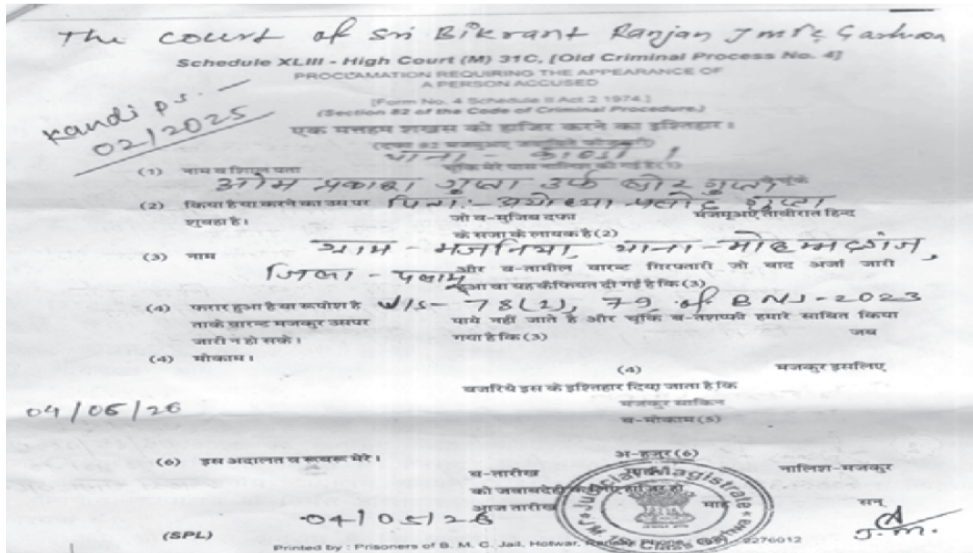 The court of Sri Bikrant Ranjan JMFC Garhwa
Schedule XLIII - High Court (M) 31C, [Old Criminal Process No. 4]
PROCLAMATION REQUIRING THE APPEARANCE OF
A PERSON ACCUSED
[Form No. 4 Schedule II Act 2 1974.]
(Section 82 of the Code of Criminal Procedure.)
Kandi P.S. —
02/2025
एक मत्तहम शखस को हाजिर करने का इश्तिहार।
थाना -
(1) नाम व
ओम प्रकाश गुप्ता उर्फ गुप्ता
(2) किया है या करने का उस पर पिता:- अयोध्या प्रसाद गुप्ता
शुवहा है। जो ब-मुजिब दफा मजमूअए ताबीरात हिन्द
के सजा के लायक है(2)
(3) नाम ग्राम - मजनिया, थाना - मोहम्मदगंज,
जिला - पलामू और ब-तामील वारन्ट गिरफ्तारी जो बाद अर्जा जारी
हुआ वा यह कैफियत दी गई है कि(3)
(4) फरार हुआ है या रूपोश है U/S- 78(2), 79 of BNS-2023
ताके वारन्ट मजकुर उसपर पाये नहीं जाते है और चूंकि ब-तशफ्फी हमारे साबित किया
जारी न हो सके। गया है कि(3) जब
(4) मोकाम।
(4) मजकुर इसलिए
बजरिये इस के इश्तिहार दिया जाता है कि
04/05/26 मजकुर साकिन
ब-मोकाम(5)
(6) इस अदालत व रूबरू मेरे। अ-हजुर(6)
ब-तारीख नालिश-मजकुर
को जवाबदेही
आज तारीख माह सन्
04/05/26
(SPL) J.M.
Printed by : Prisoners of B. M. C. Jail, Hotwar, Ranchi Phone 2276012